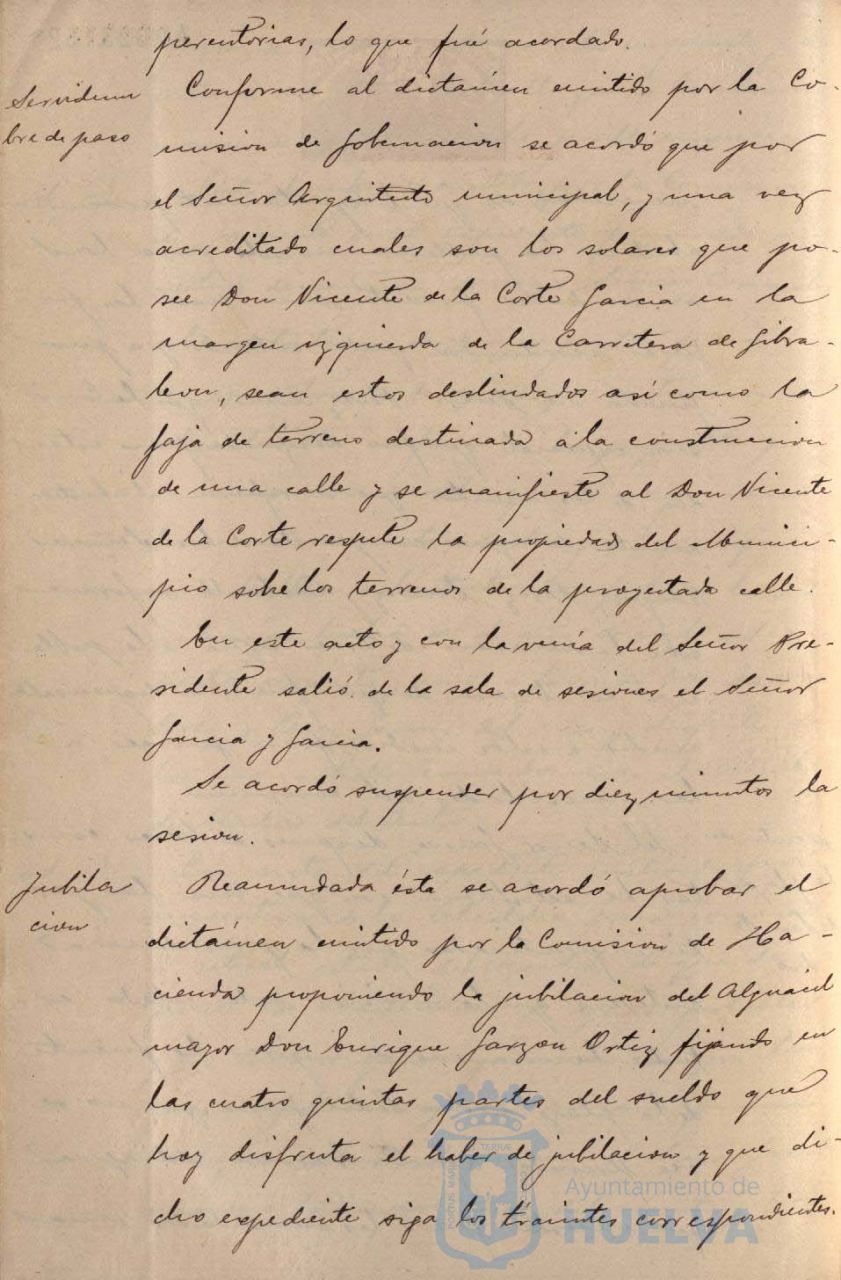 perentorias, lo que fué acordado.
Servidum
bre de paso
Conforme al dictámen emitido por la Co-
mision de Gobernacion se acordó que por
el Señor Arquitecto municipal, y una vez
acreditado cuales son los solares que po-
see Don Vicente de la Corte Garcia en la
margen izquierda de la Carretera de Gibra-
leon, sean estos deslindados así como la
faja de terreno destinada á la construccion
de una calle y se manifieste al Don Vicente
de la Corte respete la propiedad del Munici-
pio sobre los terrenos de la proyectada calle.
En este acto y con la venia del Señor Pre-
sidente salió de la sala de sesiones el Señor
Garcia y Garcia.
Se acordó suspender por diez minutos la
sesion.
Jubila
cion
Reanundada ésta se acordó aprobar el
dictámen emitido por la Comision de Ha-
cienda proponiendo la jubilacion del Alguacil
mayor Don Enrique Garzon Ortiz, fijando en
las cuatro quintas partes del sueldo que
hoy disfruta el haber de jubilacion y que di-
cho expediente siga los trámites correspondientes.
Ayuntamiento de
HUELVA